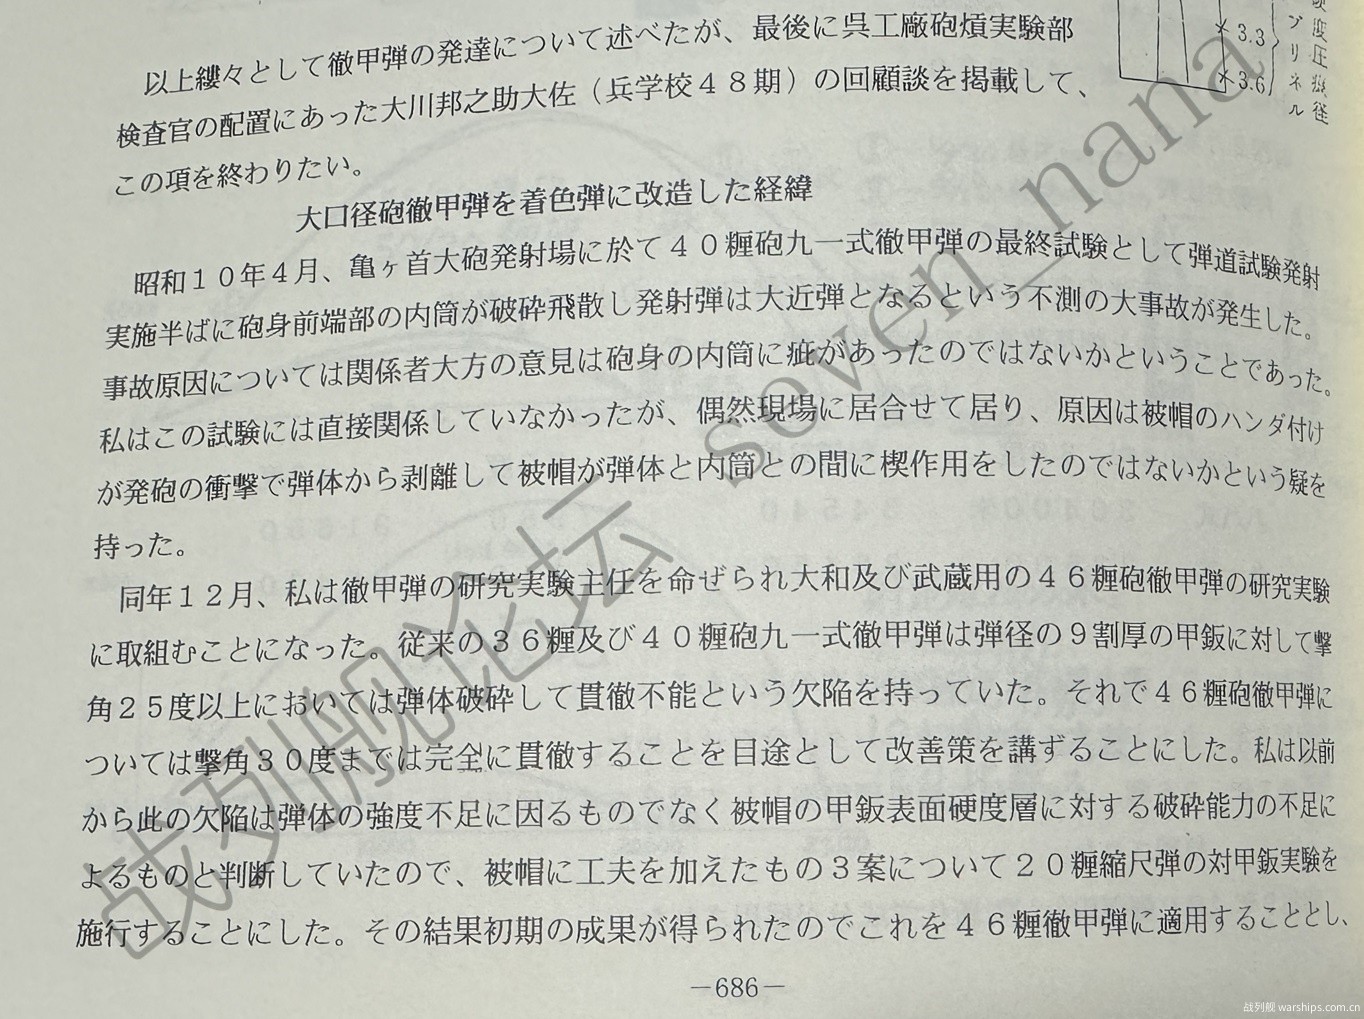 3.3
3.6
ブリネル
硬度圧痕径
以上縷々として徹甲弾の発達について述べたが、最後に呉工廠砲熕実験部
検査官の配置にあった大川邦之助大佐（兵学校４８期）の回顧談を掲載して、
この項を終わりたい。
大口径砲徹甲弾を着色弾に改造した経緯
昭和１０年４月、亀ヶ首大砲発射場に於て４０糎砲九一式徹甲弾の最終試験として弾道試験発射
実施半ばに砲身前端部の内筒が破砕飛散し発射弾は大近弾となるという不測の大事故が発生した。
事故原因については関係者大方の意見は砲身の内筒に疵があったのではないかということであった。
私はこの試験には直接関係していなかったが、偶然現場に居合せて居り、原因は被帽のハンダ付け
が発砲の衝撃で弾体から剥離して被帽が弾体と内筒との間に楔作用をしたのではないかという疑を
持った。
同年１２月、私は徹甲弾の研究実験主任を命ぜられ大和及び武蔵用の４６糎砲徹甲弾の研究実験
に取組むことになった。従来の３６糎及び４０糎砲九一式徹甲弾は弾径の９割厚の甲鈑に対して撃
角２５度以上においては弾体破砕して貫徹不能という欠陥を持っていた。それで４６糎砲徹甲弾に
ついては撃角３０度までは完全に貫徹することを目途として改善策を講ずることにした。私は以前
から此の欠陥は弾体の強度不足に因るものでなく被帽の甲鈑表面硬度層に対する破砕能力の不足に
よるものと判断していたので、被帽に工夫を加えたもの３案について２０糎縮尺弾の対甲鈑実験を
施行することにした。その結果初期の成果が得られたのでこれを４６糎徹甲弾に適用することとし、
—686—
战列舰论坛 seven_nana
战列舰 warships.com.cn